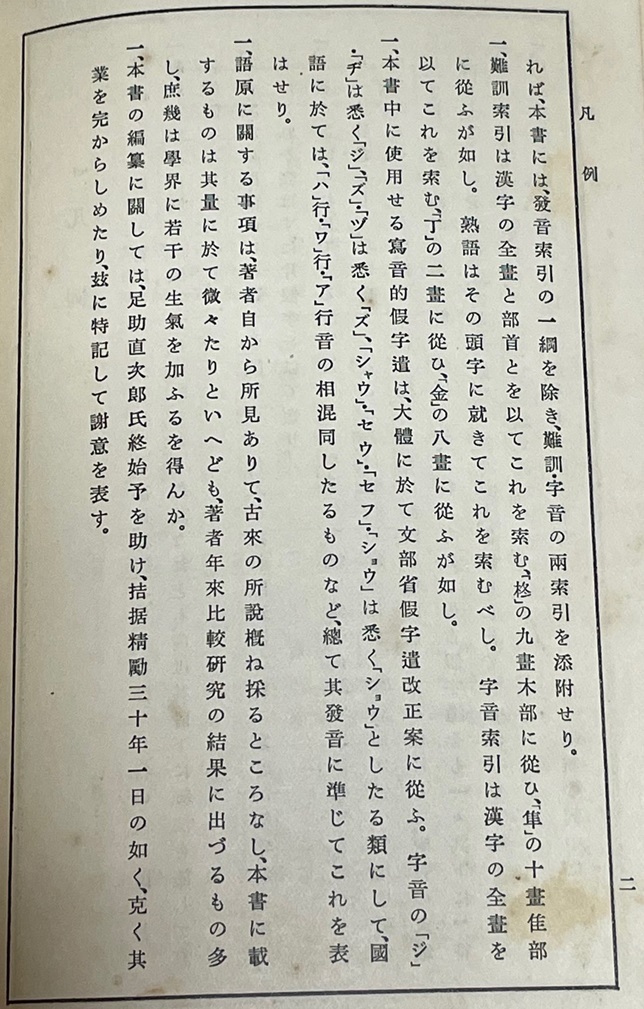 凡例
れば、本書には、發音索引の一綱を除き、難訓・字音の兩索引を添附せり。
一、難訓索引は漢字の全畫と部首とを以てこれを索む、「柊」の九畫木部に從ひ、「隼」の十畫隹部
に從ふが如し。熟語はその頭字に就きてこれを索むべし。字音索引は漢字の全畫を
以てこれを索む、「丁」の二畫に從ひ、「金」の八畫に從ふが如し。
一、本書中に使用せる寫音的假字遣は、大體に於て文部省假字遣改正案に從ふ。字音の「ジ」
・「ヂ」は悉く「ジ」、「ズ」・「ヅ」は悉く「ズ」、「シャウ」・「セウ」・「セフ」・「ショウ」は悉く「ショウ」としたる類にして、國
語に於ては、「ハ」行・「ワ」行・「ア」行音の相混同したるものなど、總て其發音に準じてこれを表
はせり。
一、語原に關する事項は、著者自から所見ありて、古來の所說槪ね採るところなし、本書に載
するものは其量に於て微々たりといへども、著者年來比較硏究の結果に出づるもの多
し、庶幾は學界に若干の生氣を加ふるを得んか。
一、本書の編纂に關しては、足助直次郞氏終始予を助け、拮据精勵三十年一日の如く、克く其
業を完からしめたり、玆に特記して謝意を表す。
二